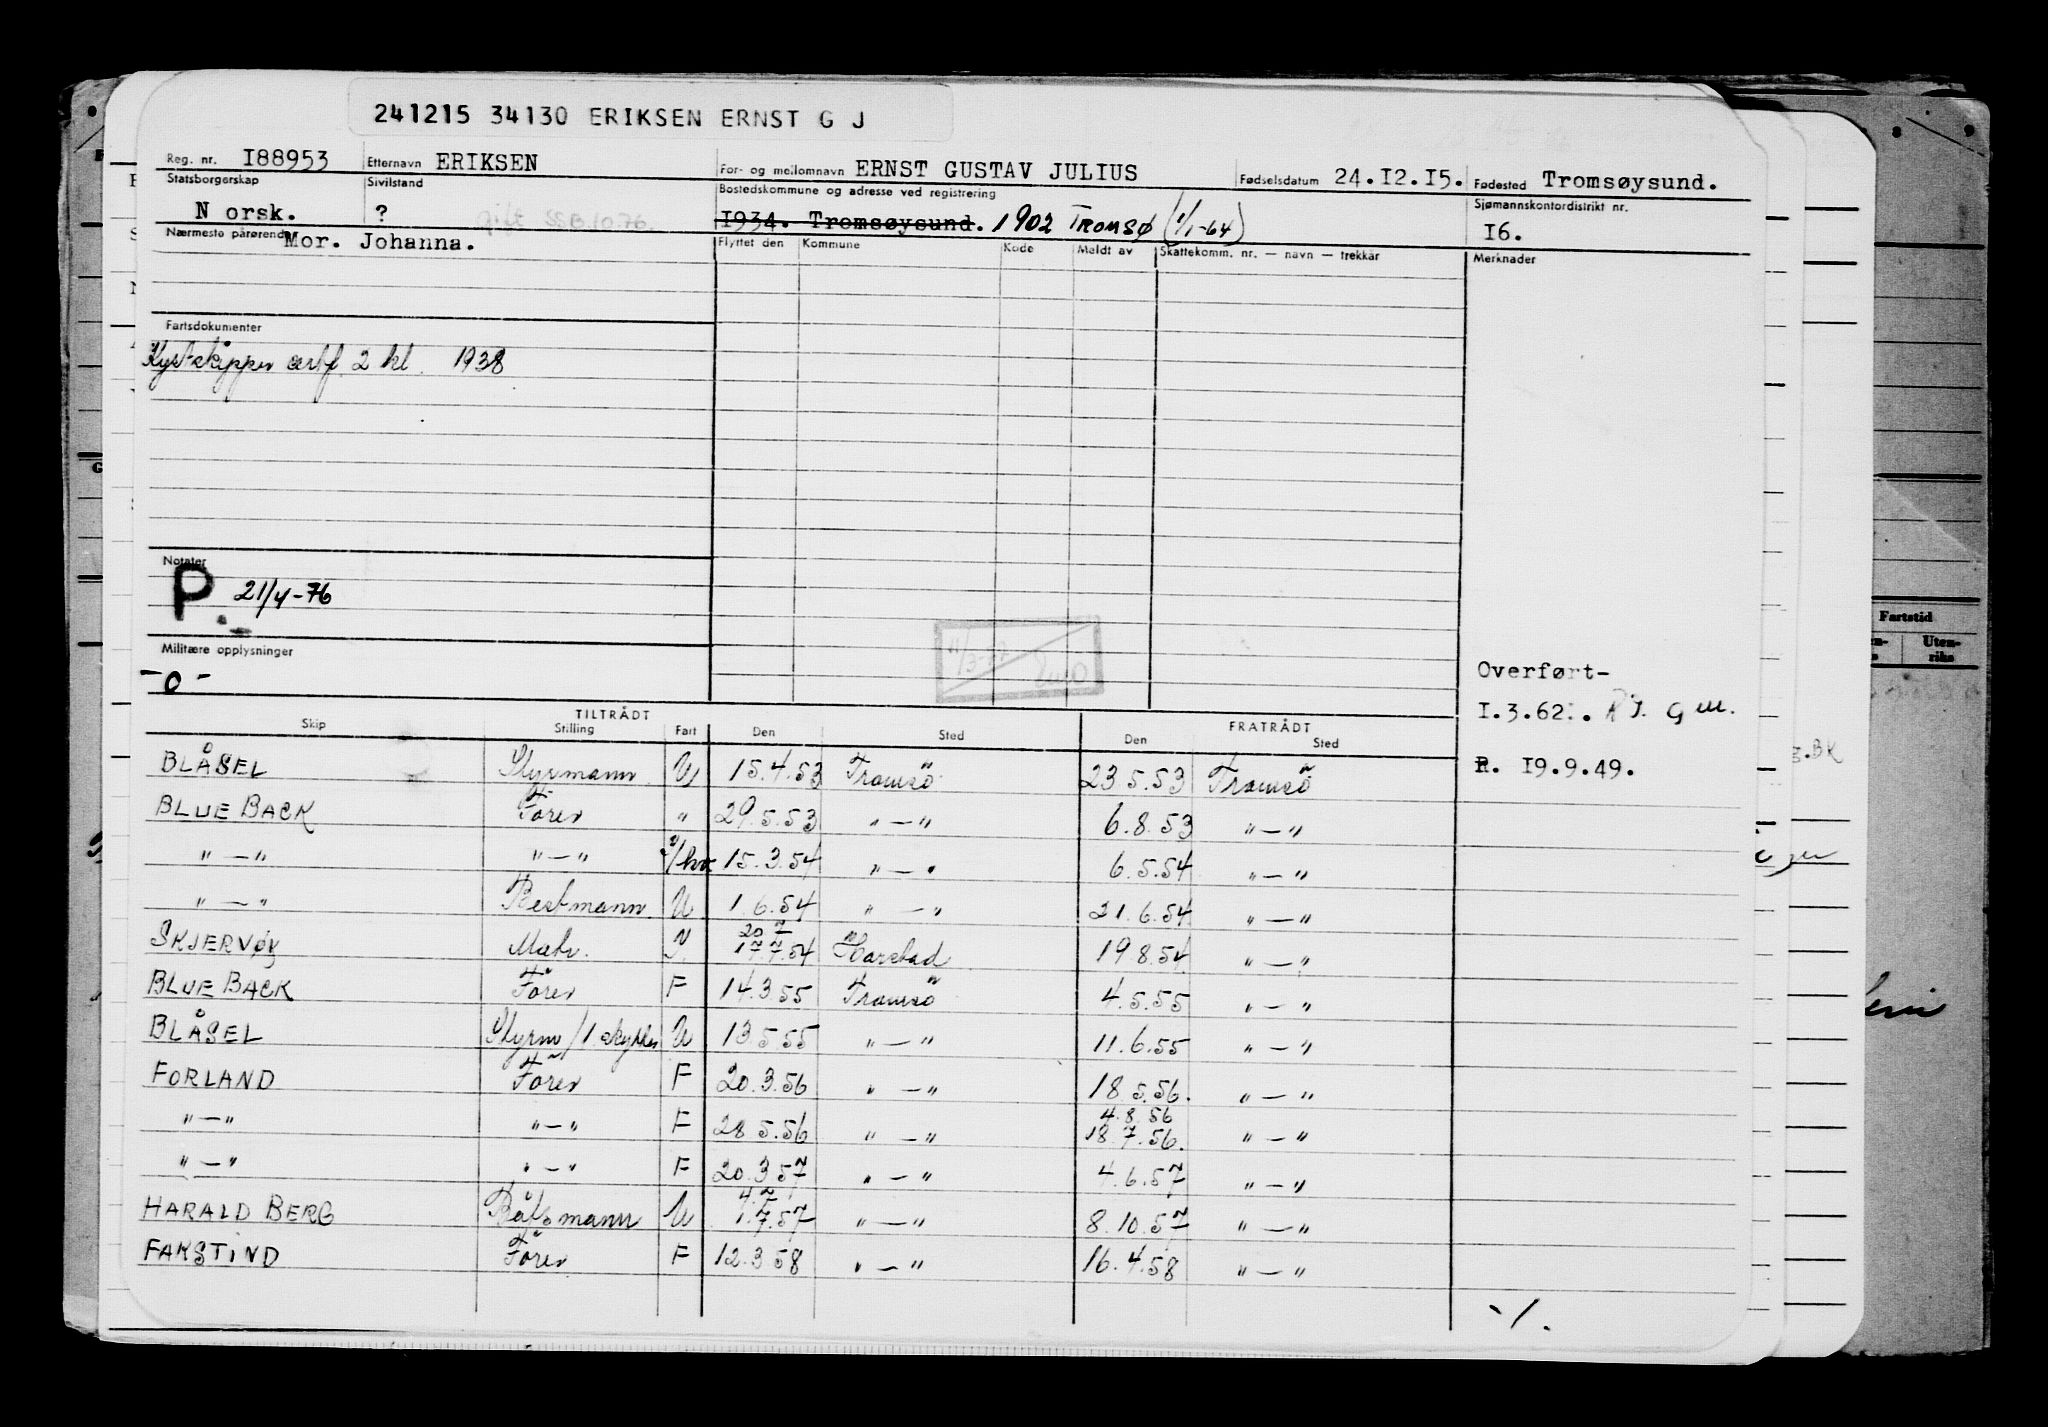 241215 34130 ERIKSEN ERNST G J
Reg. nr. I88953 Etternavn ERIKSEN For- og mellomnavn ERNST GUSTAV JULIUS Fødselsdatum 24.I2.I5. Fødested Tromsøysund.
Statsborgerskap Sivilstand Bostedskommune og adresse ved registrering Sjømannskontordistrikt nr.
N orsk. ? gift SSB 10.76. I934. Tromsøysund. 1902 TROMSØ (1/1-64) I6.
Nærmeste pårørende Mor. Johanna. Flyttet den Kommune Kode Meldt av Skattekomm. nr. — navn — trekkår Merknader
Fartsdokumenter
Kystskipper certf. 2 kl. 1938
Notater
P 21/4-76
Militære opplysninger
-0-
Overført-
I.3.62.
R. I9.9.49.
TILTRÅDT FRATRÅDT
Skip Stilling Fart Den Sted Den Sted
BLÅSEL Styrmann U 15.4.53 Tromsö 23.5.53 Tromsö
BLUE BACK Förer " 29.5.53 " — " 6.8.53 " — "
" — " " — " 15.3.54 " — " 6.5.54 " — "
" — " Bestmann U 1.6.54 " — " 21.6.54 " — "
20 7
SKJERVØY Matr. U 17.7.54 Harstad 19.8.54 " — "
BLUE BACK Förer F 14.3.55 Tromsö 4.5.55 " — "
BLÅSEL Styrm/1. skytter U 13.5.55 " — " 11.6.55 " — "
FORLAND Förer F 20.3.56 " — " 18.5.56. " — "
4.8.56
" — " " — " F 28.5.56 " — " 18.7.56. " — "
" — " " — " F 20.3.57 " — " 4.6.57 " — "
4.7
HARALD BERG Båtsmann U 1.7.57 " — " 8.10.57 " — "
FAKSTIND Förer F 12.3.58 " — " 16.4.58 " — "
-/.
Fartstid
Uten-
riks